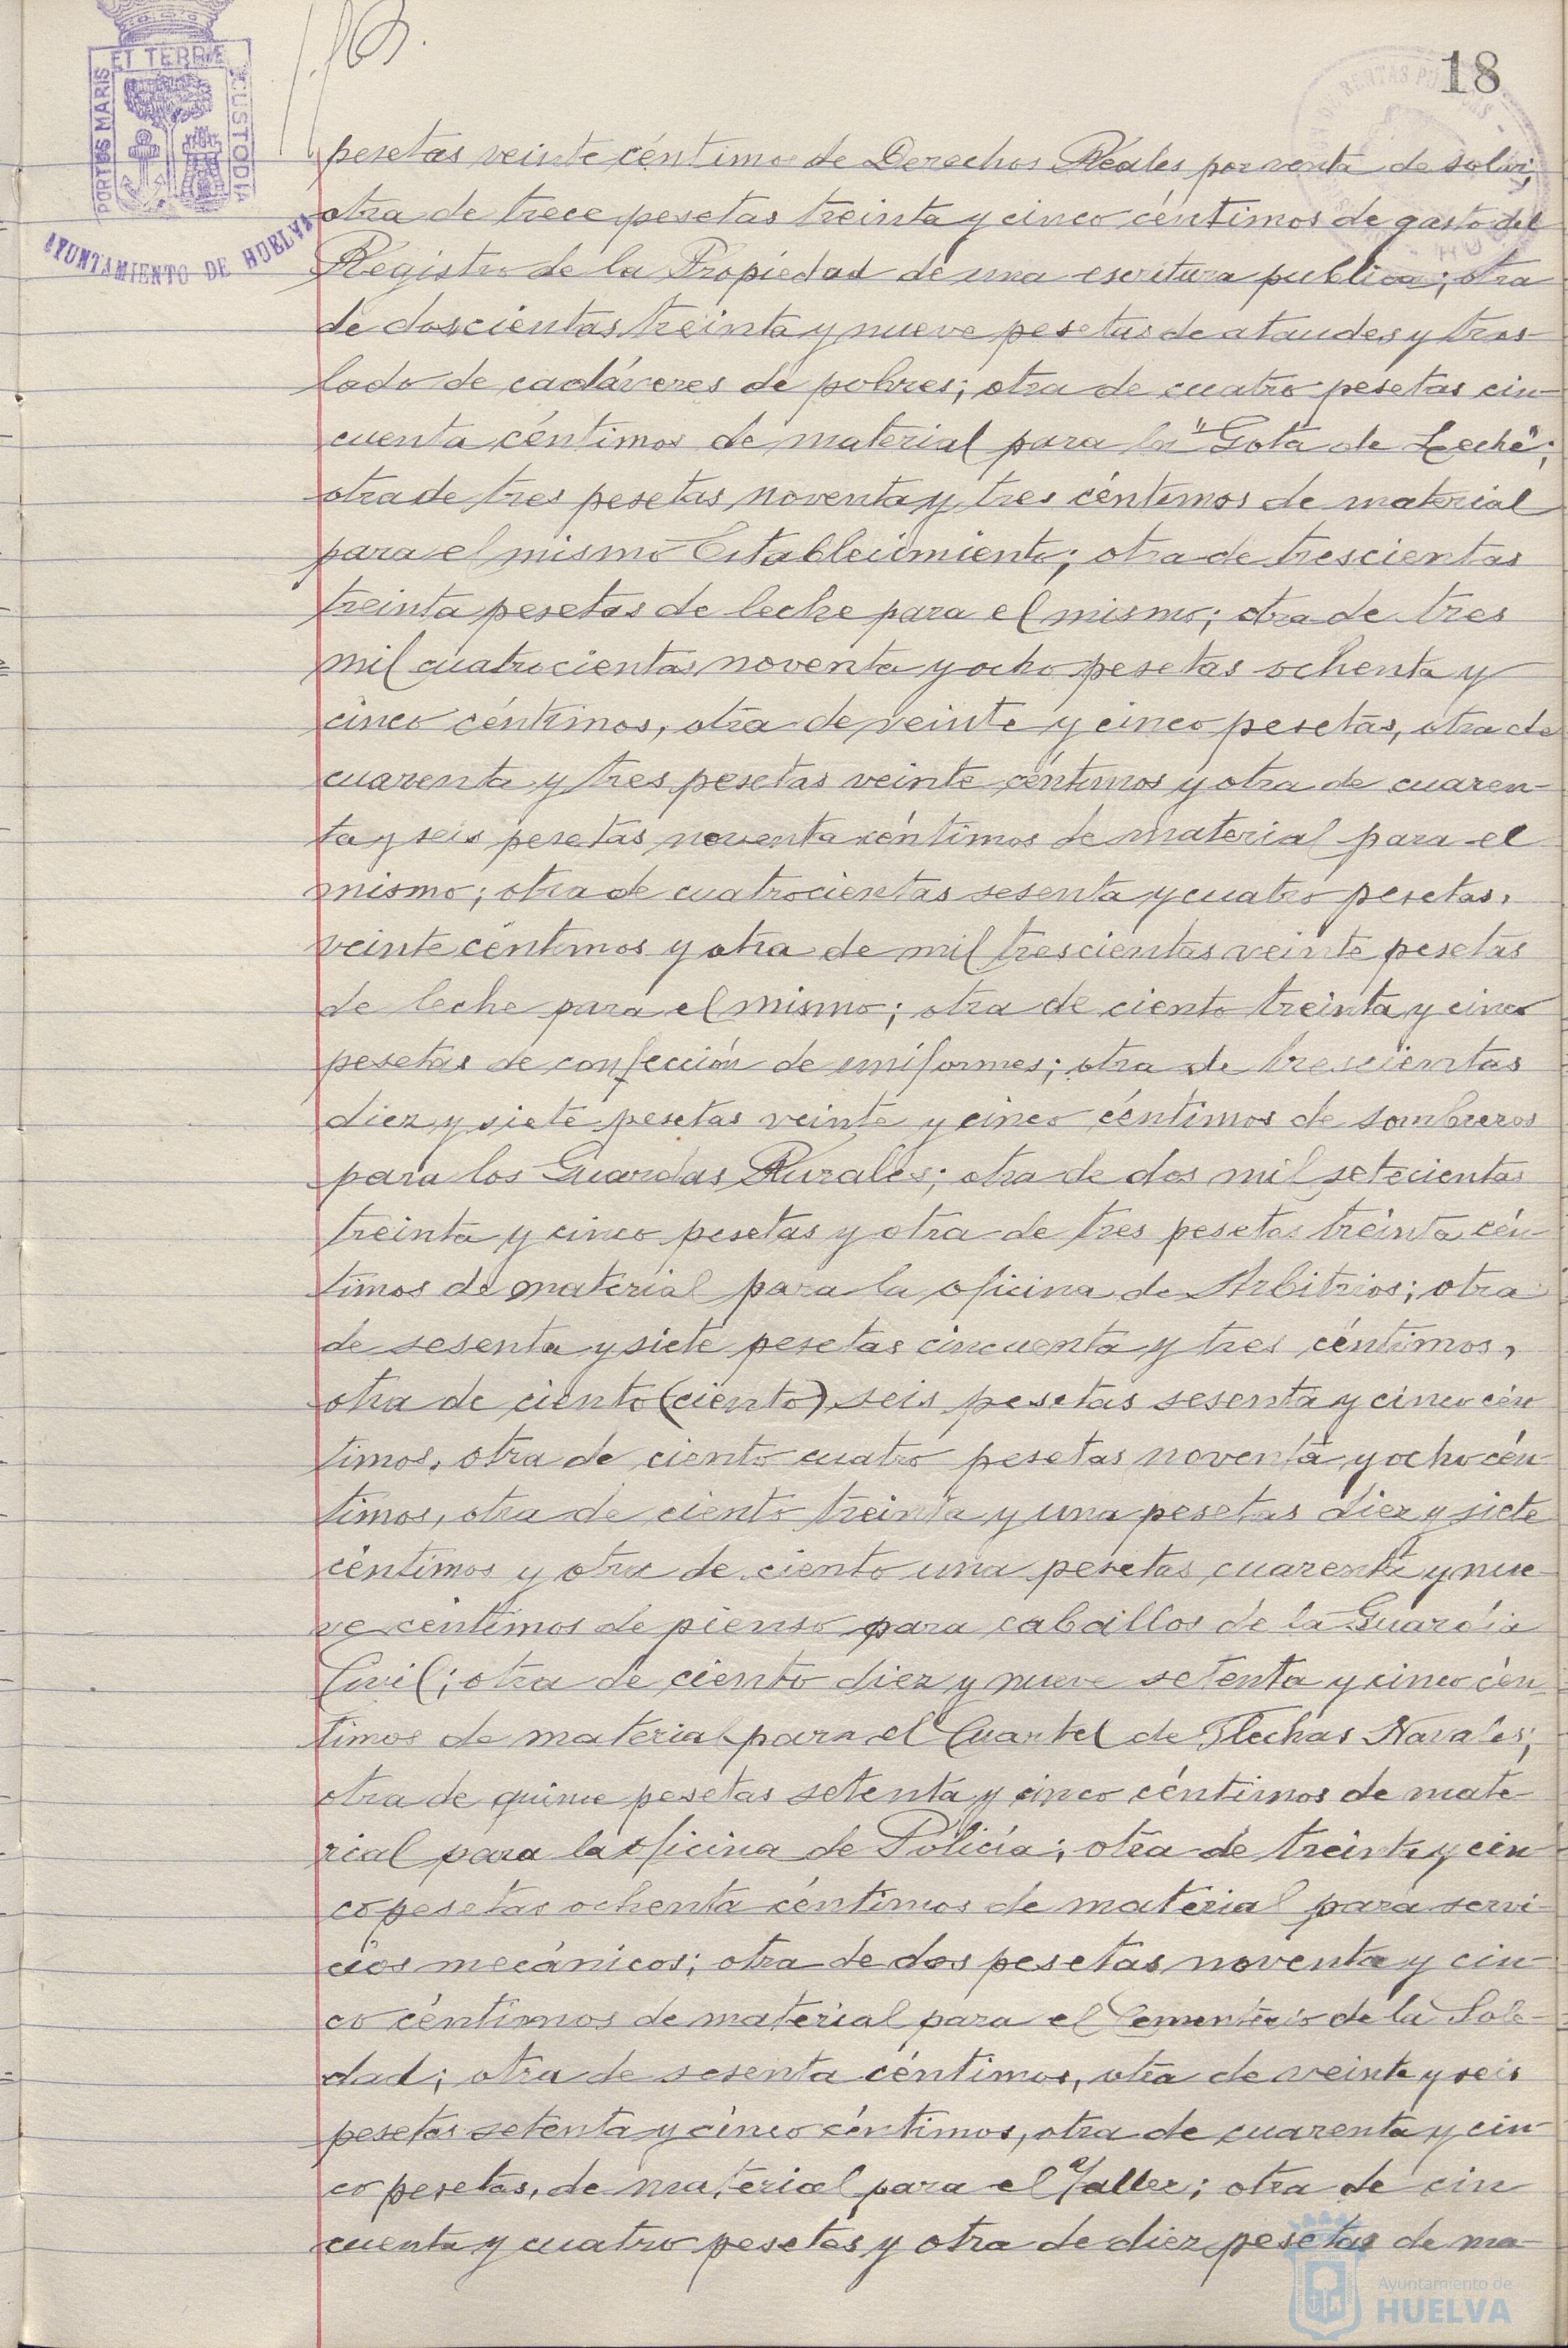 18
PORTUS MARIS ET TERRÆ CUSTODIA
AYUNTAMIENTO DE HUELVA
pesetas veinte céntimos de Derechos Reales por venta de solar;
otra de trece pesetas treinta y cinco céntimos de gasto del
Registro de la Propiedad de una escritura publica; otra
de doscientas treinta y nueve pesetas de ataudes y tras-
lado de cadáveres de pobres; otra de cuatro pesetas cin-
cuenta céntimos de material para la "Gota de Leche";
otra de tres pesetas noventa y tres céntimos de material
para el mismo Establecimiento; otra de trescientas
treinta pesetas de leche para el mismo; otra de tres
mil cuatrocientas noventa y ocho pesetas ochenta y
cinco céntimos, otra de veinte y cinco pesetas, otra de
cuarenta y tres pesetas veinte céntimos y otra de cuaren-
ta y seis pesetas noventa céntimos de material para el
mismo; otra de cuatrocientas sesenta y cuatro pesetas,
veinte céntimos y otra de mil trescientas veinte pesetas
de leche para el mismo; otra de ciento treinta y cinco
pesetas de confección de uniformes; otra de trescientas
diez y siete pesetas veinte y cinco céntimos de sombreros
para los Guardas Rurales; otra de dos mil setecientas
treinta y cinco pesetas y otra de tres pesetas treinta cén-
timos de material para la oficina de Arbitrios; otra
de sesenta y siete pesetas cincuenta y tres céntimos,
otra de ciento (ciento) seis pesetas sesenta y cinco cén
timos, otra de ciento cuatro pesetas noventa y ocho cén-
timos, otra de ciento treinta y una pesetas diez y siete
céntimos y otra de ciento una pesetas cuarenta y nue-
ve céntimos de pienso para caballos de la Guardia
Civil; otra de ciento diez y nueve setenta y cinco cén-
timos de material para el Cuartel de Flechas Navales;
otra de quince pesetas setenta y cinco céntimos de mate-
rial para la oficina de Policía; otra de treinta y cin-
co pesetas ochenta céntimos de material para servi-
cios mecánicos; otra de dos pesetas noventa y cin-
co céntimos de material para el Cementerio de la Sole-
dad; otra de sesenta céntimos, otra de veinte y seis
pesetas setenta y cinco céntimos, otra de cuarenta y cin-
co pesetas, de material para el Taller; otra de cin
cuenta y cuatro pesetas y otra de diez pesetas de ma-
Ayuntamiento de
HUELVA